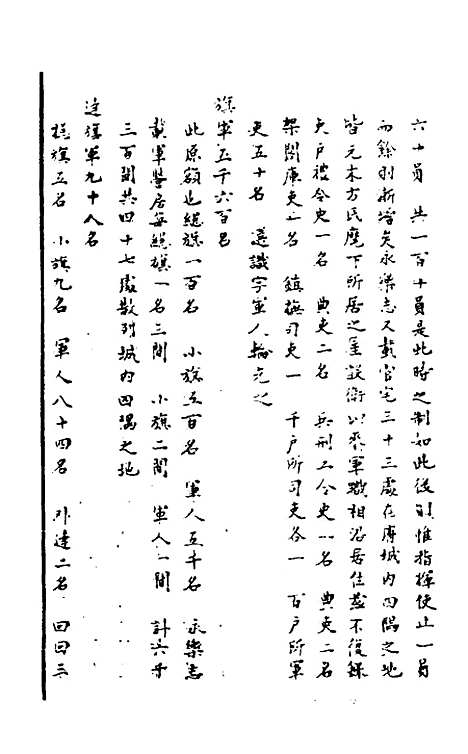 六十員　共一百十員是此時之制如此後則惟指揮使止一員
而餘則新增矣永樂志又載官宅三十三處在府城内四隅之地
皆元末方氏麾下所居之屋設衛以來軍職相沿居住茲不復錄
夫戶禮令史一名　典吏二名　兵刑工令史一名　典吏二名
架閣庫吏一名　鎮撫司吏一　千戶所司吏各一　百戶所軍
吏五十名　選識字軍人輪充之
旗軍五千六百名
此原額也總旗一百名　小旗五百名　軍人五千名　永樂志
載軍營居每總旗一名三間　小旗二間　軍人一間　計六千
三百間共四十七處散列城内四隅之地
達旗軍九十八名
總旗五名　小旗九名　軍人八十四名　外達二名　回回三